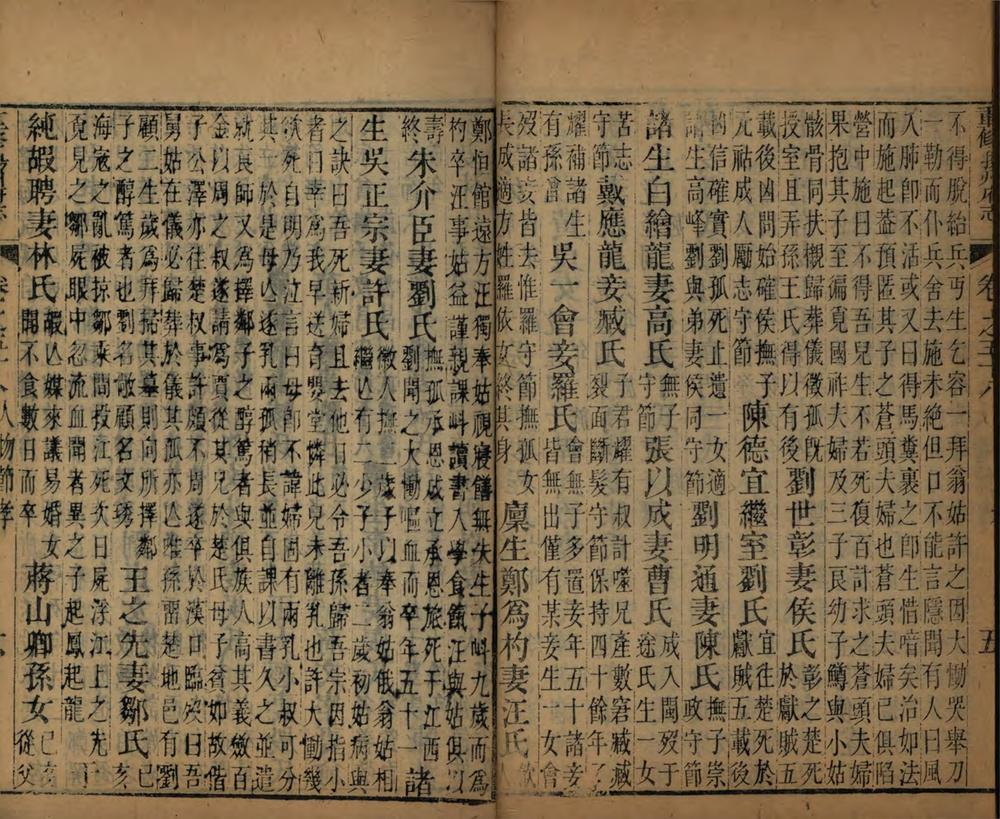 重修
不得脫給兵丐生乞容一拜翁姑許之因大慟哭舉刀
一勒而仆兵舍去施未絶但口不能言隱聞有人曰風
入肺卽不活或又曰得馬糞裹之卽生惜喑矣治如法
而施起葢預匿其子之蒼頭夫婦也蒼頭夫婦已俱陷
營中施日不得吾兒生不若死復百計求之蒼頭夫婦
果抱其子至徧覓國祚夫婦及三子艮幼子鱒與小姑
骸骨同扶櫬歸葬儀徵孤旣
授室且弄孫王氏得以有後
劉世彰妻侯氏
彰之楚死
於獻賊五
載後凶問始確侯撫子
元祜成人勵志守節
陳德宜繼室劉氏
宜往楚死於
獻賊五載後
凶信確實劉孤死止遺一女適
諸生高峰劉與弟妻侯同守節
劉明通妻陳氏
撫子崇
政守節
諸生白繪龍妻高氏
無子
守節
張以成妻曹氏
成入閩歿于
途氏生一女
苦志
守節
戴應龍妾臧氏
子君耀有叔計噬兄產數窘臧
裂面斷髮守節保持四十餘年
耀補諸生
有孫曾
吳一會妾羅氏
會無子多置妾年五十諸妾
皆無出僅有某妾生一女會
歿諸妾皆去惟羅守節撫孤女
夫成適方姓羅依女終其身
廩生鄭為杓妻汪氏
鄭恒館遠方汪獨奉姑視寢饍無失生子㪷九歲而為
杓卒汪事姑益謹親課㪷讀書入學食餼汪與姑俱以
壽
終
朱介臣妻劉氏
撫孤承恩成立承恩旅死于江西
劉聞之大慟嘔血而卒年五十一
諸
生吳正宗妻許氏
徽人撫二歲子以奉翁姑俄翁姑相
繼亾有六子小者二歲初病與
之訣曰吾死新婦且去他日必令吾孫歸吾宗因指小
者曰幸為我早送育嬰堂憐此兒未離乳也許大慟幾
欲死自明乃泣言曰母卽不諱婦固有兩乳小叔可分
其一於是母亾遂乳兩孤稍長並自課以書久之並遣
就良師又為擇鄰子之醇篤者與俱族人高其義斂百
金以周之叔請為賈從其兄於楚氏母子貧如故偕
子公澤亦往楚叔事許頗不周遂卒於漢口臨歿曰吾
舅姑在儀必歸葬於儀其孤亦亾惟孫畱楚地邑有劉
顧二生歲為拜掃其墓則向所擇鄰
子之醇篤者也劉名敬顧名文琇
王之先妻鄒氏
已
亥
海寇之亂被掠鄒乘間投江死次日屍浮江上之先
覓見之鄒屍眼中忽流血聞者異之子起鳳起龍
純嘏聘妻林氏
嘏亾媒來議易婚女
聞不食數日而卒
蔣山卿孫女
從父
卷之五十六 人物節孝